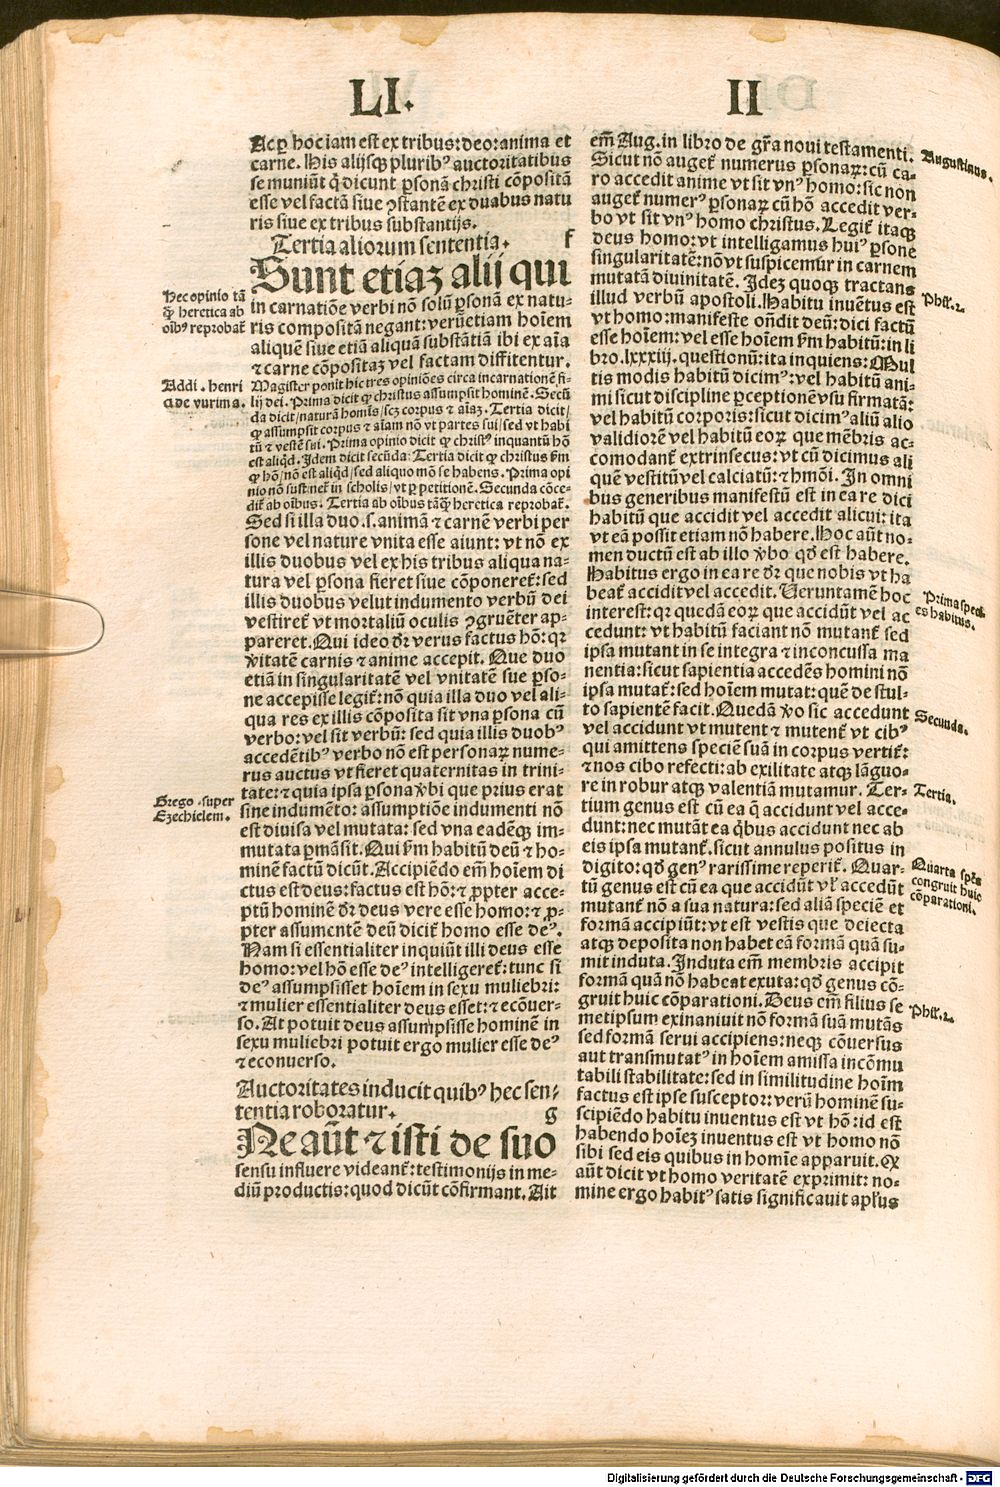 LI.
II
Ac ꝑ hoc iam est ex tribus: deo: anima et
carne. His alijsqꝫ pluribꝰ auctoritatibus
se muniūt q̄ dicunt ꝑsonā christi cōpositā
esse vel factā siue ꝯstantē ex duabus natu
ris siue ex tribus substantijs.
Tertia aliorum sententia. f
Sunt etiaꝫ alij qui
in carnatiōe verbi nō solū ꝑsonā ex natu-
ris compositā negant: verūetiam hoīem
aliquē siue etiā aliquā substātiā ibi ex aīa
⁊ carne cōpositaꝫ vel factam diffitentur.
Hec opinio tā
qͣꝫ heretica ab
oībꝰ reprobat̄
Addi. henri
ci de vurima.
Magister ponit hic tres opiniōes circa incarnationē fi-
lij dei. Prima dicit ꝙ christus assumpsit hominē. Secū
da dicit/ naturā homīs/ scꝫ corpus ⁊ aīaꝫ. Tertia dicit/
ꝙ assumpsit corpus ⁊ aīam nō vt partes sui/ sed vt habi
tū ⁊ vestē sui. Prima opinio dicit ꝙ christꝰ inquantū hō
est aliqd. Idem dicit secūda: Tertia dicit ꝙ christus ẜm
ꝙ hō/ nō est aliqd/ sed aliquo mō se habens. Prima opi
nio nō sustinet̄ in scholis/ vt ꝑ petitionē. Secunda cōce-
dit̄ ab oībus. Tertia ab oībus tāqͣꝫ heretica reprobat̄.
Sed si illa duo .s. animā ⁊ carnē verbi per
sone vel nature vnita esse aiunt: vt nō ex
illis duobus vel ex his tribus aliqua na-
tura vel ꝑsona fieret siue cōponeret̄: sed
illis duobus velut indumento verbū dei
vestiret̄ vt mortaliū oculis ꝯgruēter ap-
pareret. Qui ideo dr̄ verus factus hō: qꝛ
v̓itatē carnis ⁊ anime accepit. Que duo
etiā in singularitatē vel vnitatē sue ꝑso-
ne accepisse legit̄: nō quia illa duo vel ali-
qua res ex illis cōposita sit vna ꝑsona cū
verbo: vel sit verbū: sed quia illis duobꝰ
accedētibꝰ verbo nō est personaꝝ nume-
rus auctus vt fieret quaternitas in trini-
tate: ⁊ quia ipsa ꝑsona v̓bi que prius erat
sine indumēto: assumptiōe indumenti nō
est diuisa vel mutata: sed vna eadēqꝫ im-
mutata ꝑmāsit. Qui ẜm habitū deū ⁊ ho-
minē factū dicūt. Accipiēdo em̄ hoīem di
ctus est deus: factus est hō: ⁊ ꝓpter acce-
ptū hominē dr̄ deus vere esse homo: ⁊ ꝓ-
pter assumentē deū dicit̄ homo esse deꝰ.
Nam si essentialiter inquiūt illi deus esse
homo: vel hō esse deꝰ intelligeret̄: tunc si
deꝰ assumpsisset hoīem in sexu muliebri:
⁊ mulier essentialiter deus esset: ⁊ ecōuer-
so. At potuit deus assumpsisse hominē in
sexu muliebri potuit ergo mulier esse deꝰ
⁊ econuerso.
Grego. super
Ezechielem.
Auctoritates inducit quibꝰ hec sen-
tentia roboratur. g
Ne aūt ⁊ isti de suo
sensu influere videant̄: testimonijs in me-
diū productis: quod dicūt cōfirmant. Ait
em̄ Aug. in libro de gr̄a noui testamenti.
Sicut nō auget̄ numerus ꝑsonaꝝ: cū ca-
ro accedit anime vt sit vnꝰ homo: sic non
auget̄ numerꝰ ꝑsonaꝝ cū hō accedit ver-
bo vt sit vnꝰ homo christus. Legit̄ itaqꝫ
deus homo: vt intelligamus huiꝰ ꝑsone
singularitatē: nō vt suspicemur in carnem
mutatā diuinitatē. Ideꝫ quoqꝫ tractans
illud verbū apostoli. Habitu inuētus est
vt homo: manifeste on̄dit deū: dici factū
esse hoīem: vel esse hoīem ẜm habitū: in li
bro. lxxxiij. questionū: ita inquiens: Mul
tis modis habitū dicimꝰ: vel habitū ani-
mi sicut discipline ꝑceptionē vsu firmatā:
vel habitū corporis: sicut dicimꝰ aliū alio
validiorē vel habitū eoꝝ que mēbris ac-
comodant̄ extrinsecus: vt cū dicimus ali
quē vestitū vel calciatū: ⁊ hmōi. In omni
bus generibus manifestū est in ea re dici
habitū que accidit vel accedit alicui: ita
vt eā possit etiam nō habere. Hoc aūt no-
men ductū est ab illo v̓bo qd̄ est habere.
Habitus ergo in ea re dr̄ que nobis vt ha
beat̄ accidit vel accedit. Veruntamē hoc
interest: qꝛ quedā eoꝝ que accidūt vel ac
cedunt: vt habitū faciant nō mutant̄ sed
ipsa mutant in se integra ⁊ inconcussa ma
nentia: sicut sapientia accedēs homini nō
ipsa mutat̄: sed hoīem mutat: quē de stul-
to sapientē facit. Quedā v̓o sic accedunt
vel accidunt vt mutent ⁊ mutent̄ vt cibꝰ
qui amittens speciē suā in corpus vertit̄:
⁊ nos cibo refecti: ab exilitate atqꝫ lāguo-
re in robur atqꝫ valentiā mutamur. Ter-
tium genus est cū ea q̄ accidunt vel acce-
dunt: nec mutāt ea qͥbus accidunt nec ab
eis ipsa mutant̄. sicut annulus positus in
digito: qd̄ genꝰ rarissime reperit̄. Quar-
tū genus est cū ea que accidūt vl̓ accedūt
mutant̄ nō a sua natura: sed aliā speciē et
formā accipiūt: vt est vestis que deiecta
atqꝫ deposita non habet eā formā quā su-
mit induta. Induta em̄ membris accipit
formā quā nō habeat exuta: qd̄ genus cō-
gruit huic cōparationi. Deus em̄ filius se
metipsum exinaniuit nō formā suā mutās
sed formā serui accipiens: neqꝫ cōuersus
aut transmutatꝰ in hoīem amissa incōmu
tabili stabilitate: sed in similitudine hoīm
factus est ipse susceptor: verū hominē su-
scipiēdo habitu inuentus est vt hō: id est
habendo hoīeꝫ inuentus est vt homo nō
sibi sed eis quibus in homīe apparuit. Qͥ
aūt dicit vt homo veritatē exprimit: no-
mine ergo habitꝰ satis significauit apl̓us
Augustinus.
Phil̓. 2.
Prima speci-
es habitus.
Secunda.
Tertia.
Quarta spēs
congruit huic
cōparationi.
Phil̓. 2.
Digitalisierung gefördert durch die Deutsche Forschungsgemeinschaft - DFG